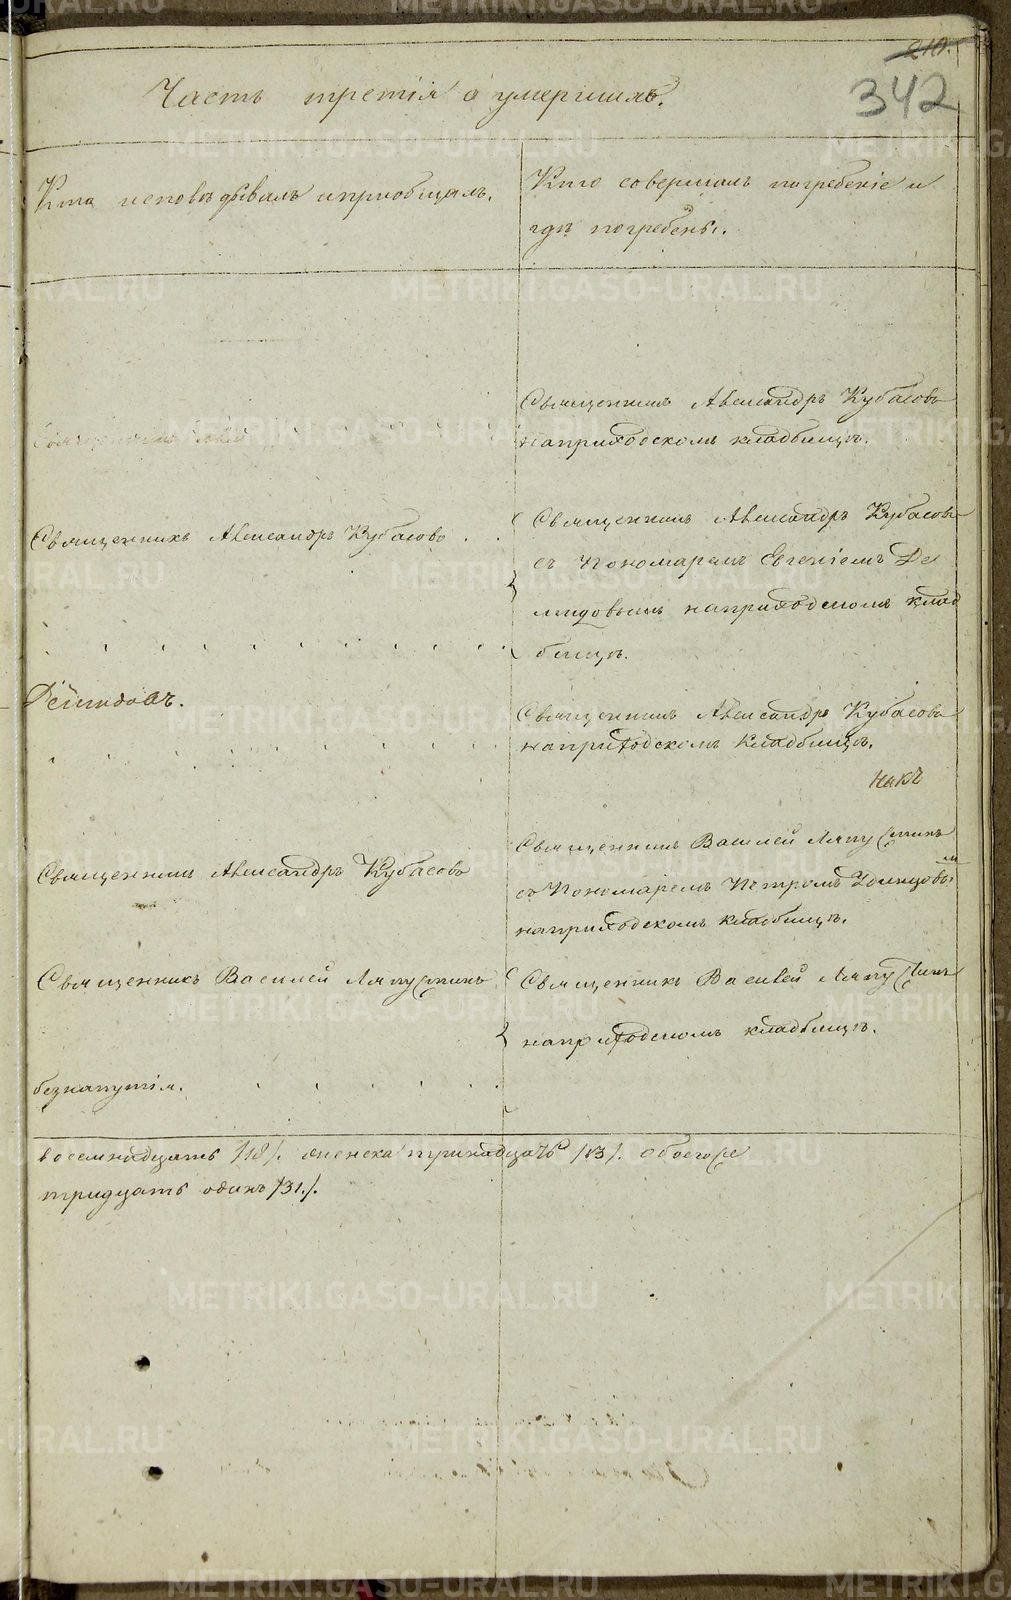 210.
342
Часть третія о умершихъ.
Кто исповѣдывалъ и пріобщалъ.
Кто совершалъ погребеніе и
гдѣ погребены.
Священникъ Александръ Кубасовъ
на приходскомъ кладбищѣ.
Священникъ Александръ Кубасовъ
Священникъ Александръ Кубасовъ
съ Пономаремъ Евгеніемъ Де
мидовымъ на приходскомъ клад
бищѣ.
Демидовъ.
Священникъ Александръ Кубасовъ
на приходскомъ кладбищѣ.
Священникъ Александръ Кубасовъ
Священникъ Василей Ляпустинъ
съ Пономаремъ Петромъ Удинцовымъ
на приходскомъ кладбищѣ.
Священникъ Василей Ляпустинъ
Священникъ Василей Ляпустинъ
на приходскомъ кладбищѣ.
без напутія.
восемнадцать /18/. женска тринадцать /13/. обоего
тридцать одинъ /31./.
METRIKI.GASO-URAL.RU